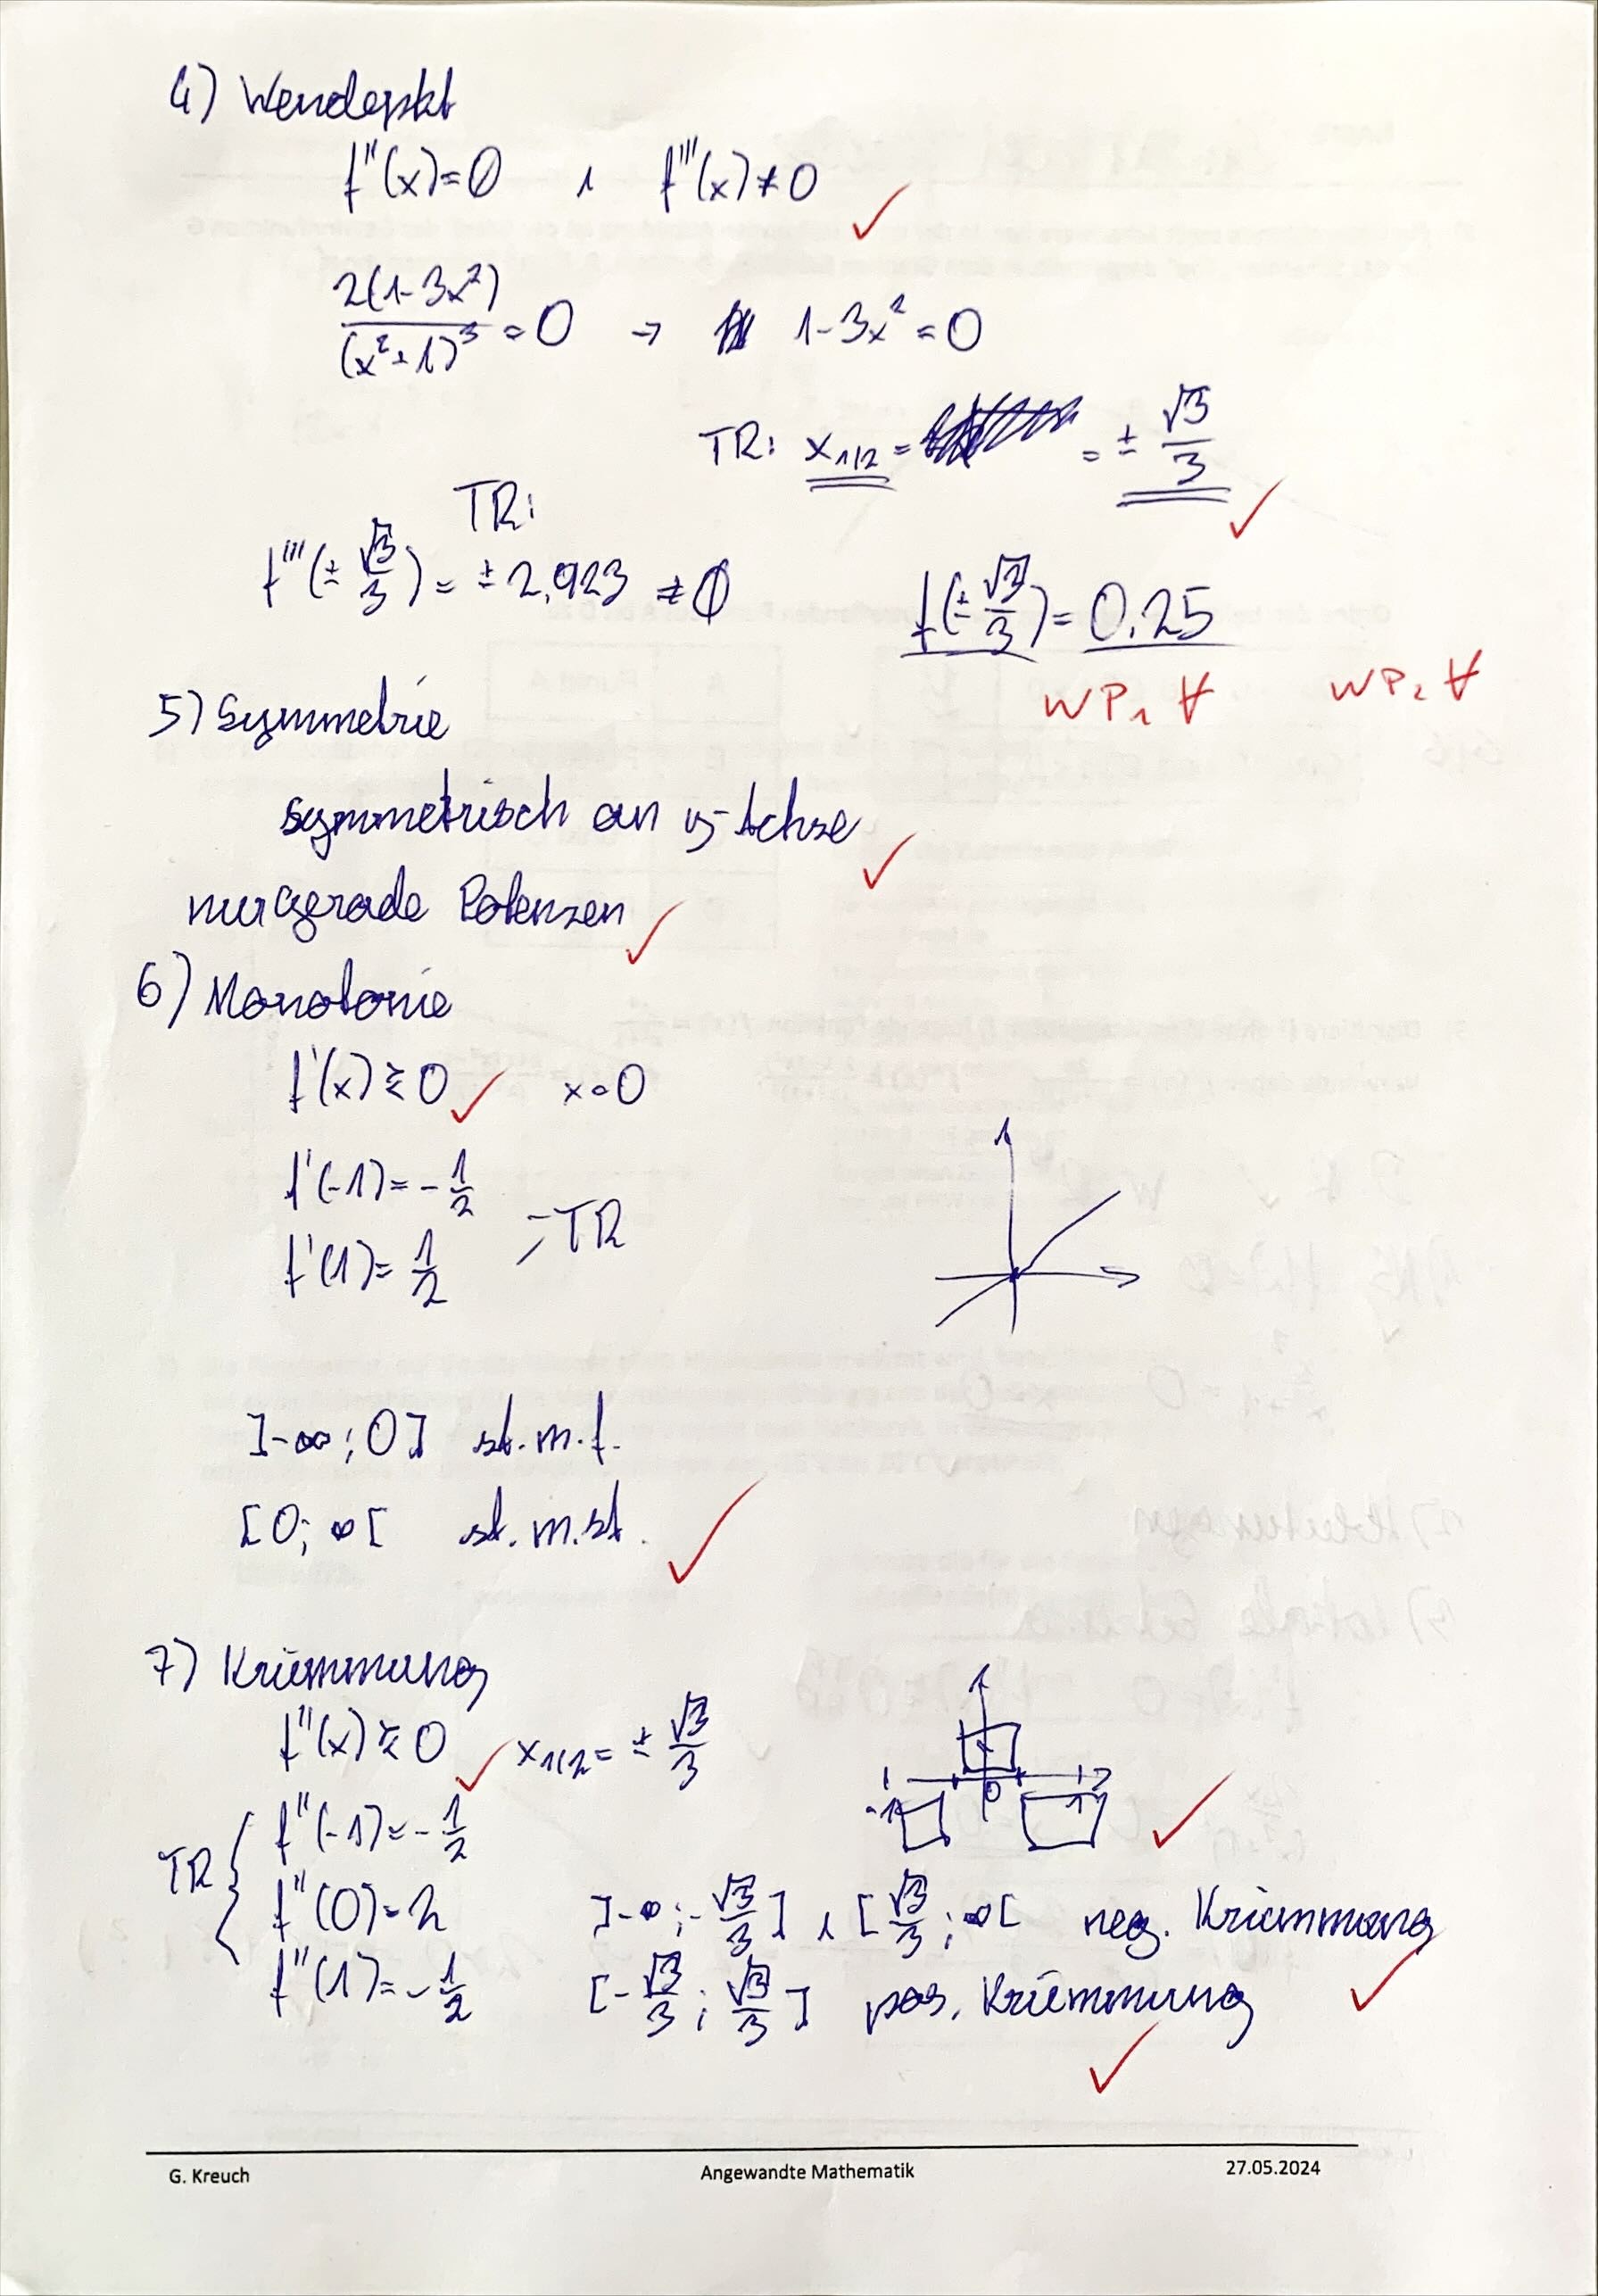 4) Wendepkt
f''(x)=0 ∧ f'''(x)≠0 ✓
2(1-3x²)/(x²+1)³ = 0 → 1-3x²=0
TR: x₁/₂ = = ± √3/3 ✓
TR:
f'''(± √3/3) = ±2,923 ≠ 0 f(± √3/3) = 0,25
WP₁ ∀ WP₂ ∀
5) Symmetrie
symmetrisch an y-Achse ✓
nur gerade Potenzen ✓
6) Monotonie
f'(x) ≷ 0 ✓ x=0
f'(-1) = -1/2
TR
f'(1) = 1/2
]-∞; 0] st. m. f.
[0; ∞[ st. m. st. ✓
7) Krümmung
f''(x) ≷ 0 ✓ x₁/₂ = ± √3/3
-1 0 1 ✓
TR { f''(-1) = -1/2
f''(0) = 2 ]-∞; -√3/3] ∧ [√3/3; ∞[ neg. Krümmung ✓
f''(1) = -1/2 [-√3/3; √3/3] pos. Krümmung ✓
G. Kreuch Angewandte Mathematik 27.05.2024